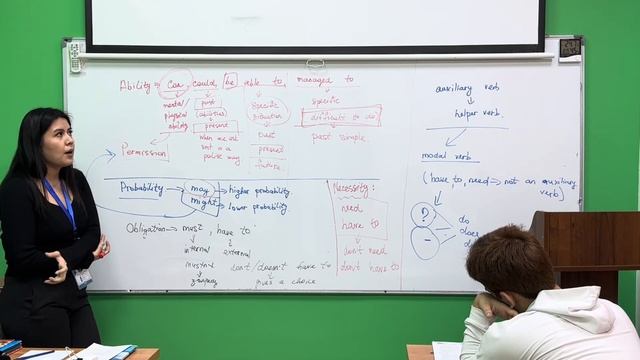 Ability → Can, could, be able to, managed to
mental/ past specific specific
physical (abilities) situation difficult to do
ability present past past simple.
when we are present
not in a future
polite way
Permission
Probability → may → higher probability
might → lower probability.
Obligation → must, have to
internal external
don't/doesn't have to
gives a choice
Necessity:
need
have to
don't need
don't have to
auxiliary verb
helper verb.
modal verb
(have to, need → not an auxiliary
verb)
? do
- does